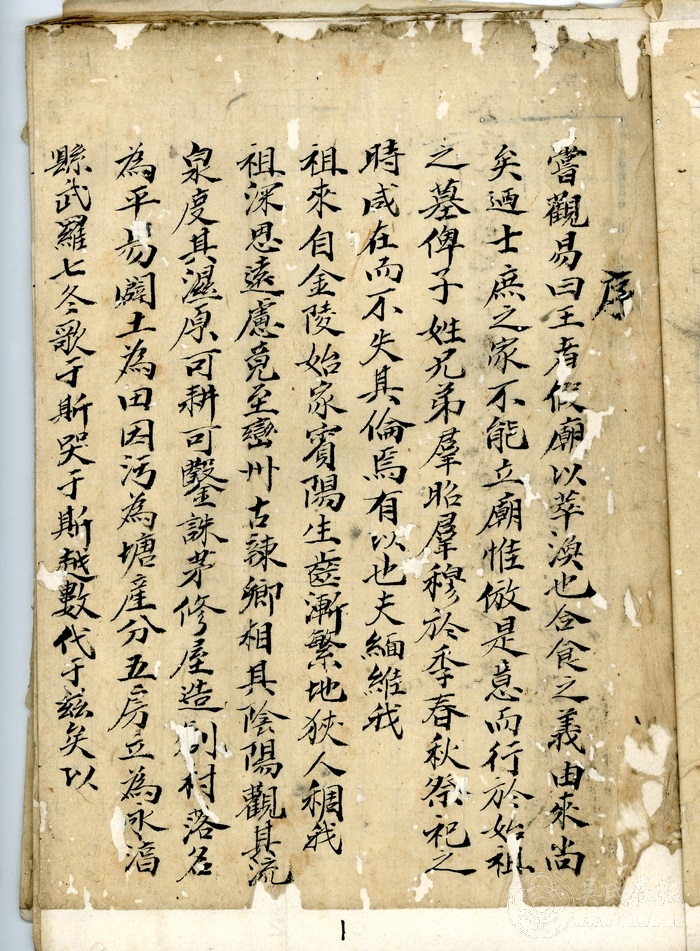 序
嘗觀易曰王者假廟以萃渙也合食之義由來尚
矣廼士庶之家不能立廟惟倣是意而行於始祖
之墓俾子姓兄弟羣昭羣穆於季春秋祭祀之
時咸在而不失其倫焉有以也夫緬維我
祖來自金陵始家賓陽生齒漸繁地狹人稠我
祖深思遠慮竟至巒州古辣鄉相其陰陽觀其流
泉度其濕原可耕可鑿誅茅修屋造刱村落名
為平昜闢土為田因污為塘產分五房立為永淯
縣武羅七冬歌于斯哭于斯越數代于茲矣以
1